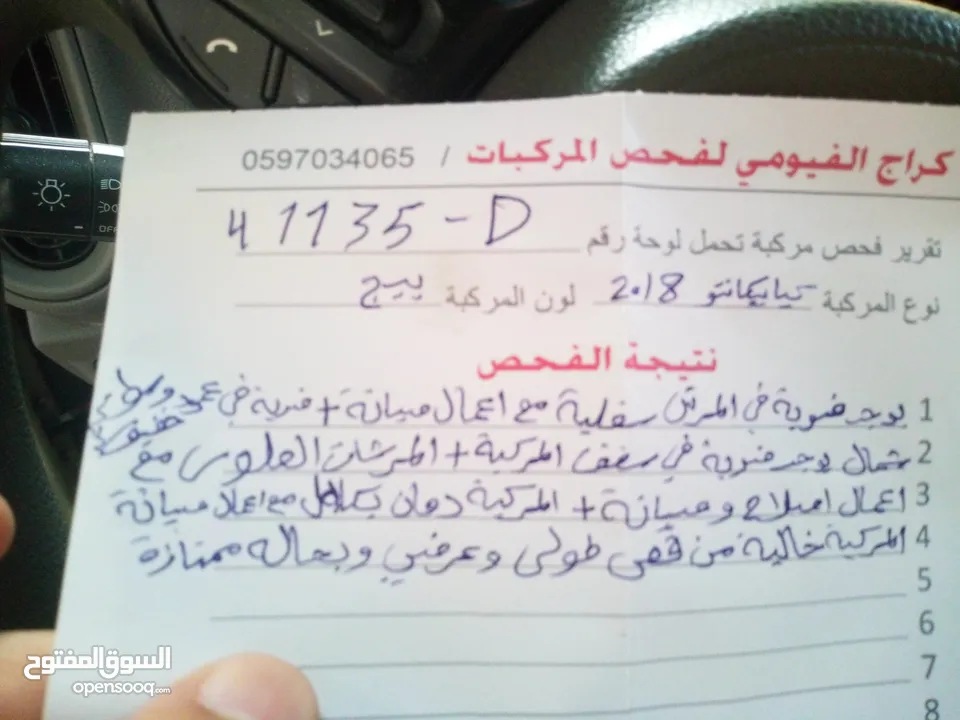 كراج الفيومي لفحص المركبات / 0597034065
تقرير فحص مركبة تحمل لوحة رقم 41135-D
نوع المركبة كيا بيكانتو 2018 لون المركبة بيج
نتيجة الفحص
1 يوجد ضربة في المرش سفلية مع اعمال صيانة + ضربة في عمود وسط
2 شمال يوجد ضربة في سقف المركبة + المرشات العلوي مع
3 اعمال اصلاح وصيانة + المركبة دهان بكامل مع اعمال صيانة
4 المركبة خالية من قص طولي وعرضي وبحاله ممتازة
5
6
7
8
السوق المفتوح
opensooq.com
OFF